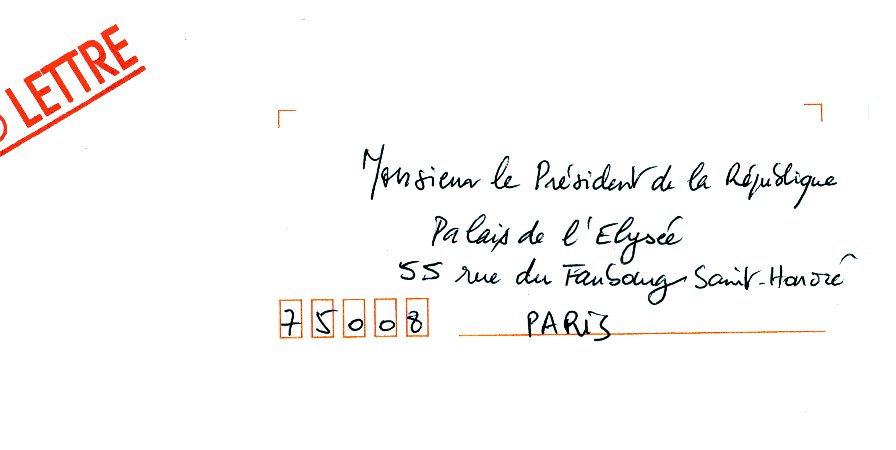 LETTRE
Monsieur le Président de la République
Palais de l'Elysée
55 rue du Faubourg Saint-Honoré
75008 PARIS